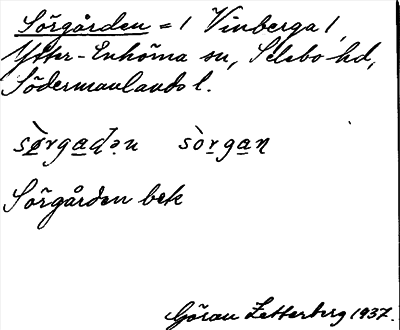 Sörgården = 1 Vinberga 1,
Ytter-Enhörna sn, Selebo hd,
Södermanlands l.
sø̀rgadən sòrgan
Sörgården bek
Göran Zetterberg 1937.